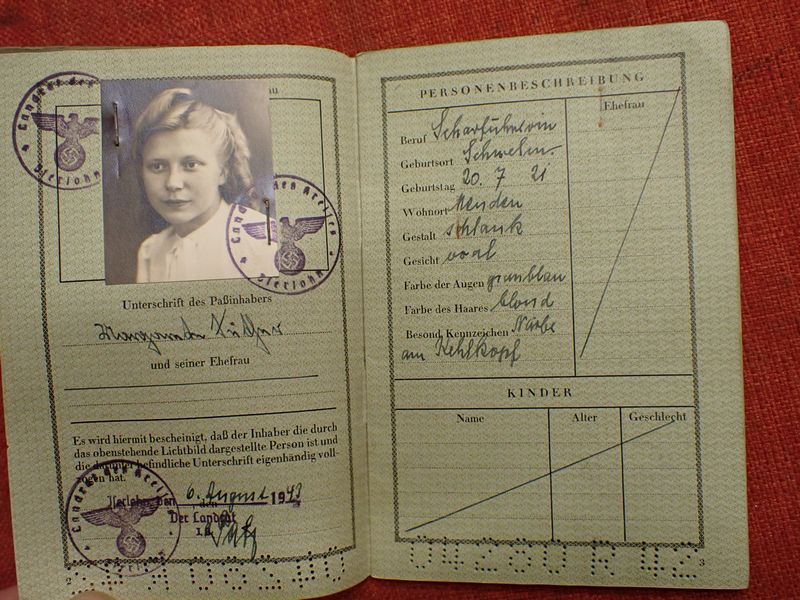 Landrat des Kreises
Iserlohn
Landrat des Kreises
Iserlohn
Unterschrift des Paßinhabers
und seiner Ehefrau
Es wird hiermit bescheinigt, daß der Inhaber die durch
das obenstehende Lichtbild dargestellte Person ist und
die darunter befindliche Unterschrift eigenhändig voll-
zogen hat.
Iserlohn, den 6. August 1943
Der Landrat
I.A.
Landrat des Kreises
Iserlohn
2
PERSONENBESCHREIBUNG
Ehefrau
Beruf Scharführerin
Geburtsort Schwelm
Geburtstag 20. 7 21
Wohnort Menden
Gestalt schlank
Gesicht oval
Farbe der Augen graublau
Farbe des Haares blond
Besond. Kennzeichen Narbe
am Kehlkopf
KINDER
Name Alter Geschlecht
3